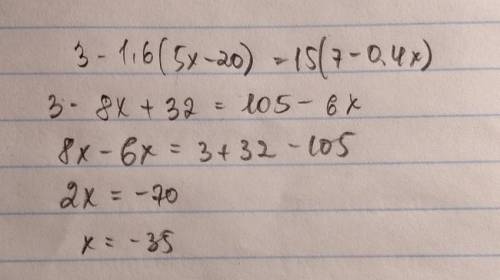 3 - 1.6(5x-20) = 15(7-0.4x)
3 - 8x + 32 = 105 - 6x
8x - 6x = 3 + 32 - 105
2x = -70
x = -35